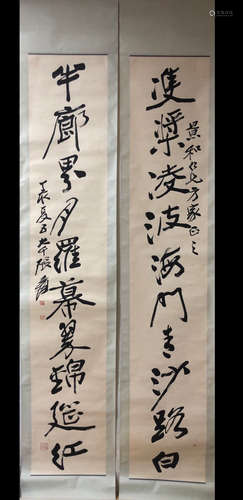 隻槳凌波海門青沙路白
景和仁兄方家正之
半廊界月羅幕翠錦筵紅
丁亥夏五 大千張爰